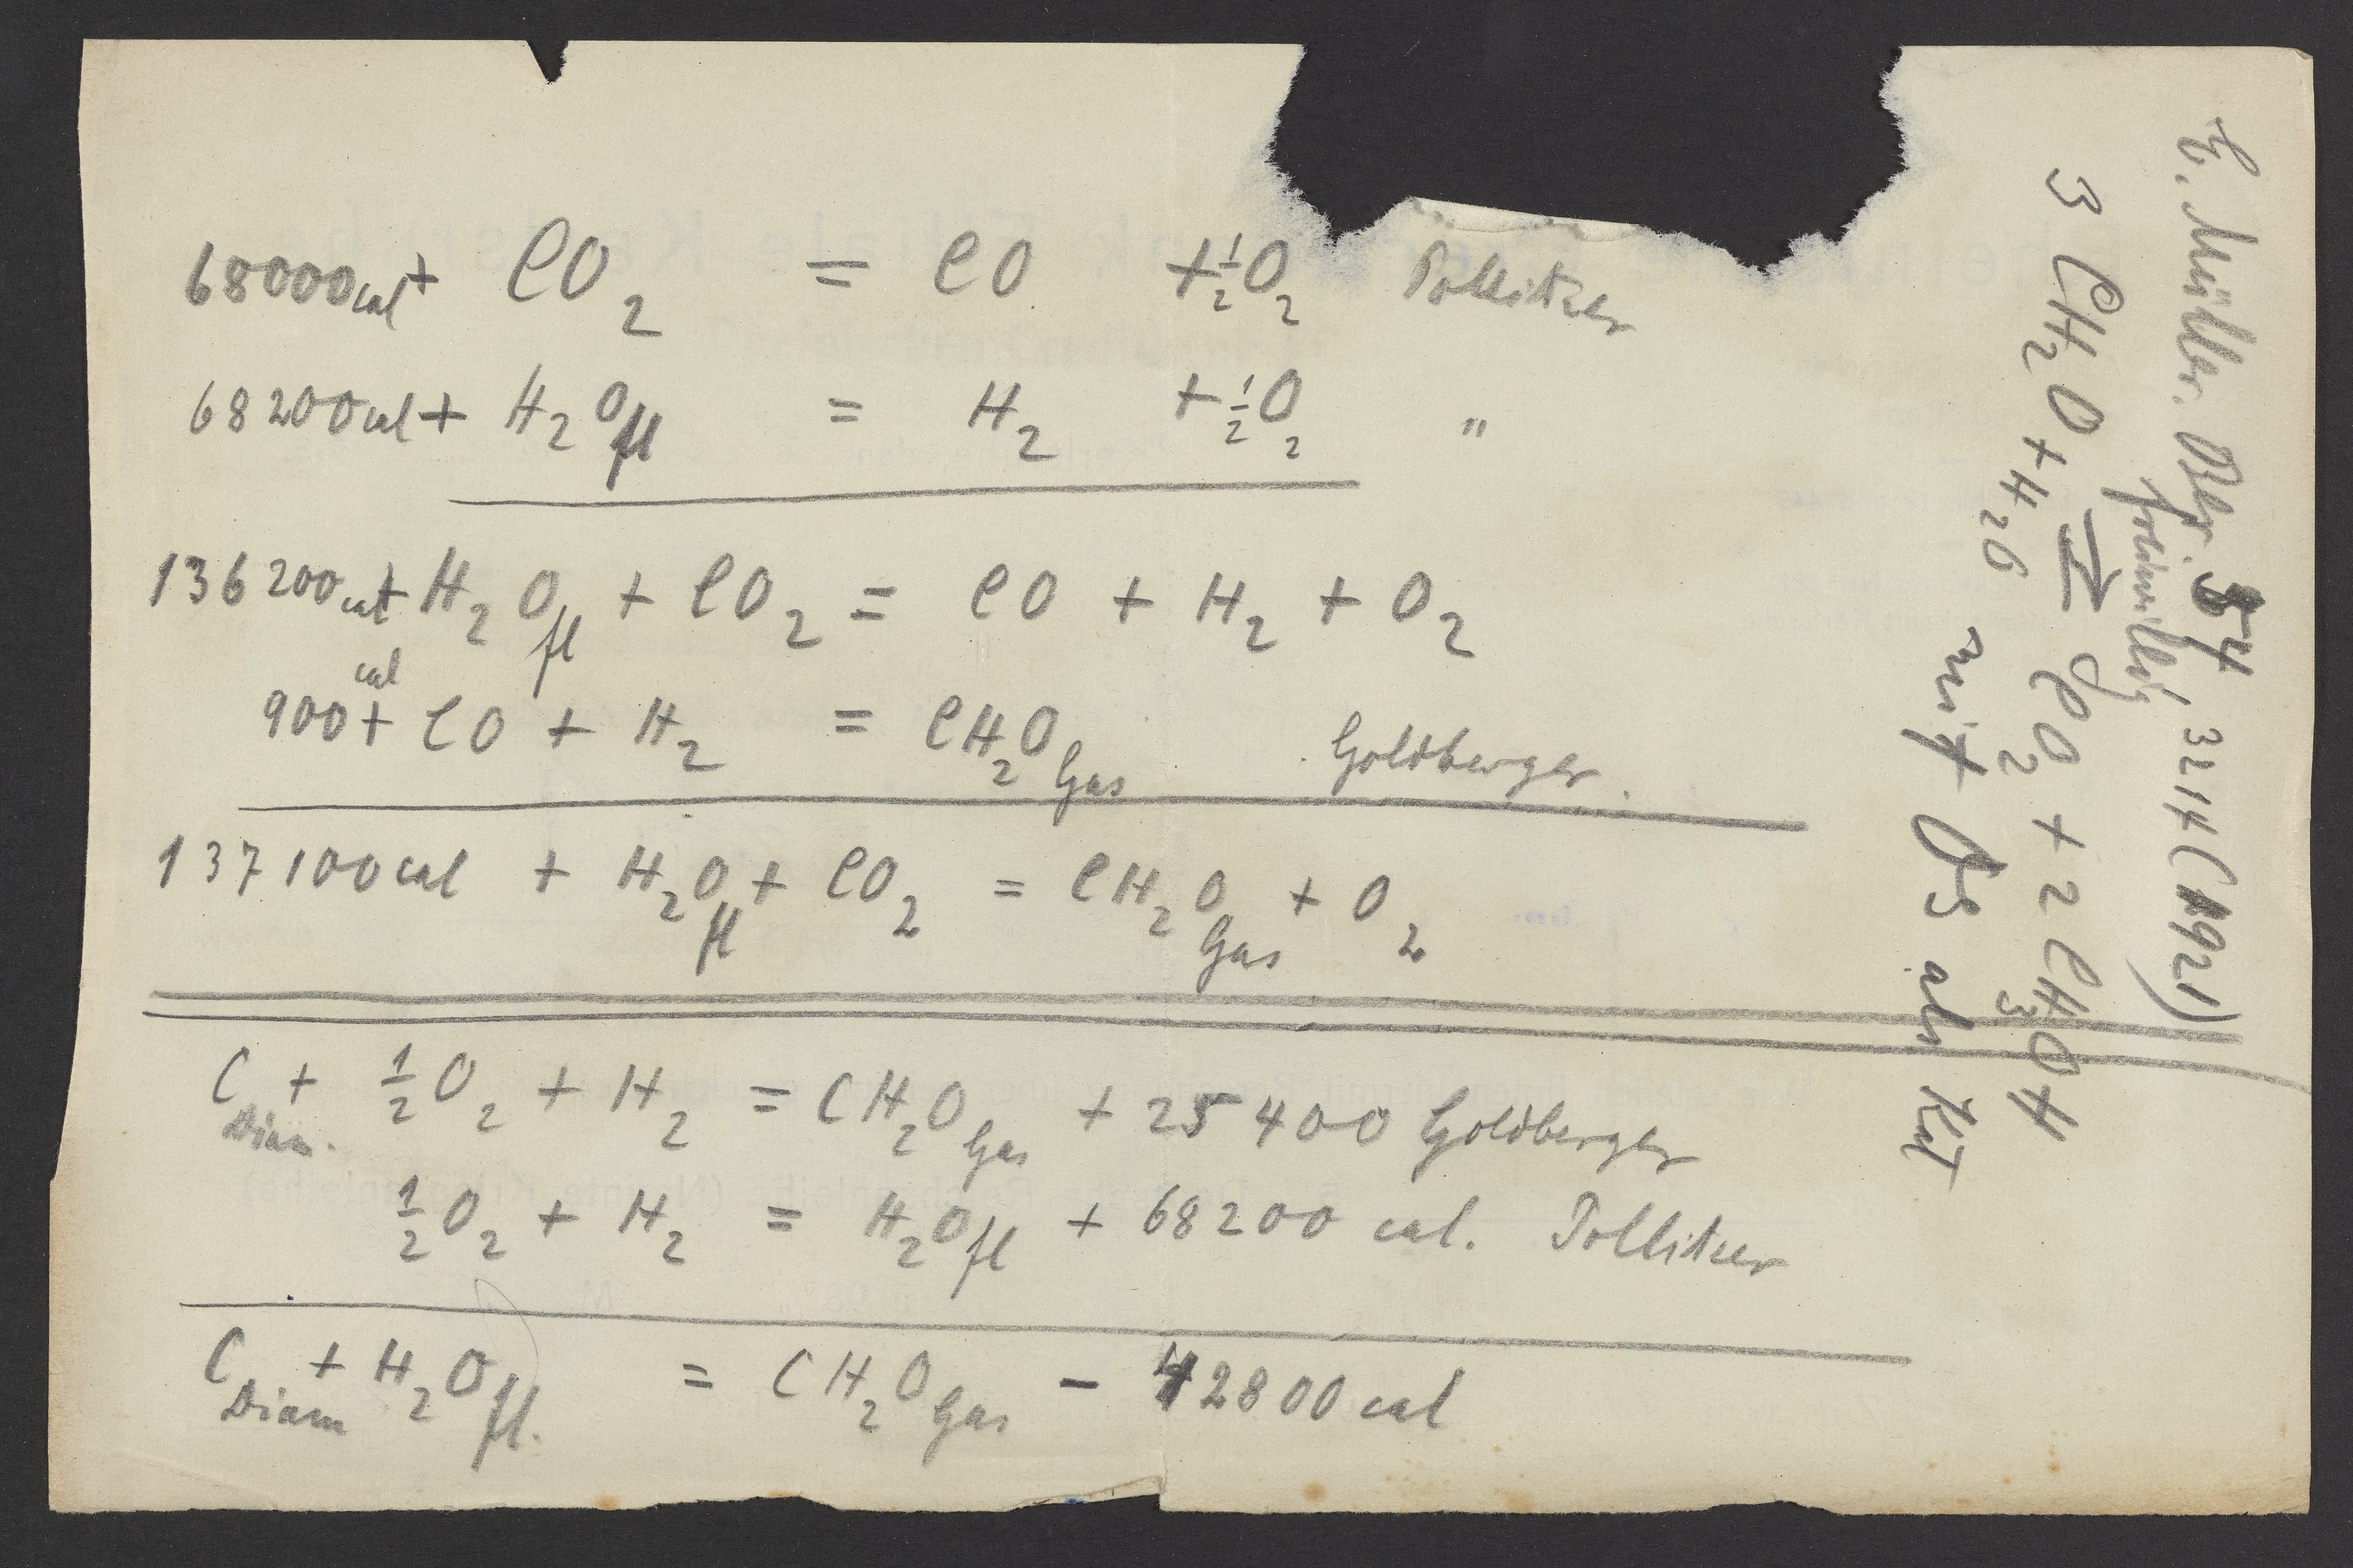 68000 cal + CO₂ = CO + ½O₂ Pollitzer
68200 cal + H₂O fl = H₂ + ½O₂ "
136200 cal + H₂O fl + CO₂ = CO + H₂ + O₂
900 cal + CO + H₂ = CH₂O Gas Goldberger.
137100 cal + H₂O fl + CO₂ = CH₂O Gas + O₂
C Diam. + ½O₂ + H₂ = CH₂O Gas + 25400 Goldberger
½O₂ + H₂ = H₂O fl + 68200 cal. Pollitzer
C Diam + H₂O fl. = CH₂O Gas - 42800 cal
E. Müller. Ber. 54, 3214 (1921)
freiwillig
3 CH₂O + H₂O ⇄ CO₂ + 2 CH₃OH
mit Os als Kat